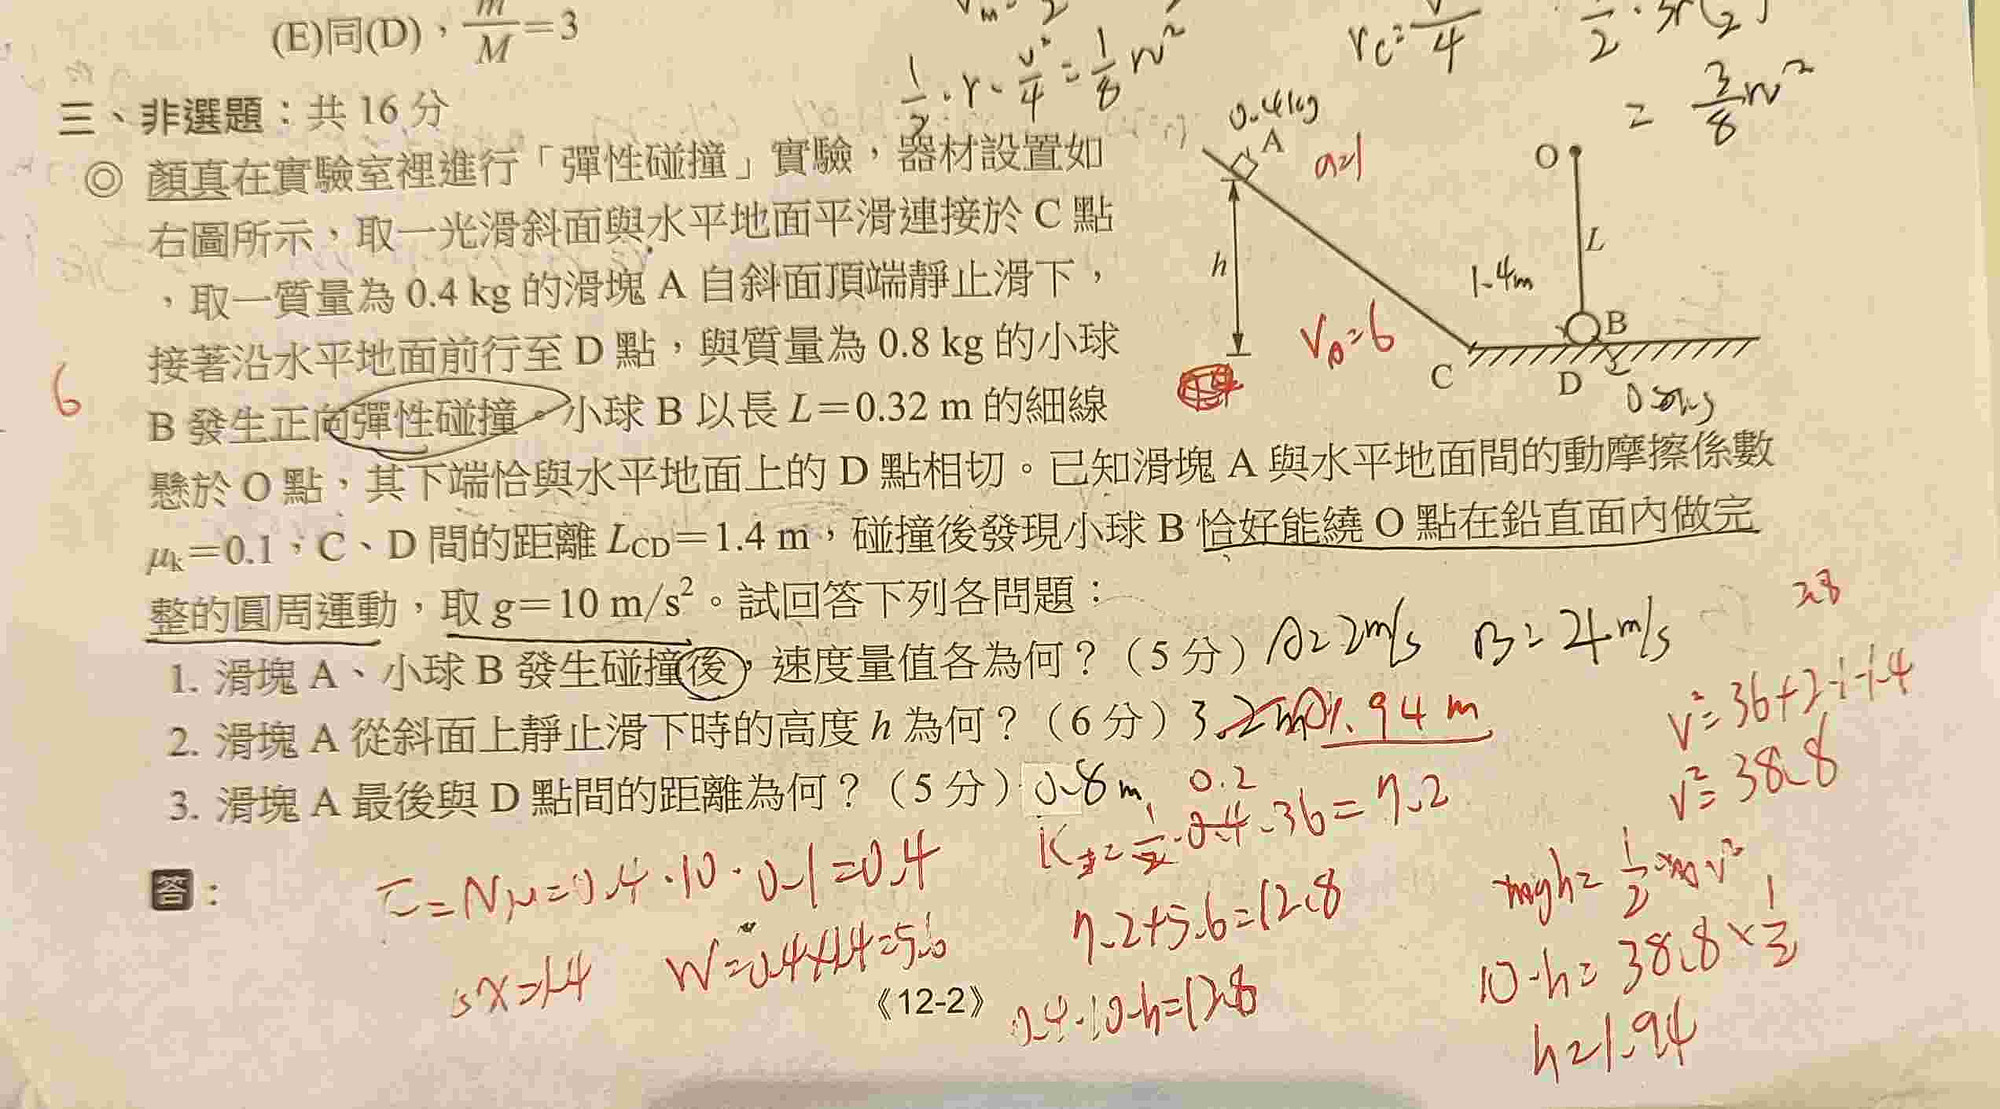 (E)同(D)，m/M=3
1/2・r・v²/4=1/8rv²
rC=v/4
=3/8rv²
三、非選題：共 16 分
◎ 顏真在實驗室裡進行「彈性碰撞」實驗，器材設置如
右圖所示，取一光滑斜面與水平地面平滑連接於 C 點
，取一質量為 0.4 kg 的滑塊 A 自斜面頂端靜止滑下，
接著沿水平地面前行至 D 點，與質量為 0.8 kg 的小球
B 發生正向彈性碰撞。小球 B 以長 L=0.32 m 的細線
懸於 O 點，其下端恰與水平地面上的 D 點相切。已知滑塊 A 與水平地面間的動摩擦係數
μk=0.1，C、D 間的距離 LCD=1.4 m，碰撞後發現小球 B 恰好能繞 O 點在鉛直面內做完
整的圓周運動，取 g=10 m/s²。試回答下列各問題：
1. 滑塊 A、小球 B 發生碰撞後，速度量值各為何？（5 分）A=2m/s B=4m/s
2. 滑塊 A 從斜面上靜止滑下時的高度 h 為何？（6 分）3.2m 1.94 m
3. 滑塊 A 最後與 D 點間的距離為何？（5 分）0.8m
答：
0.4kg
A
a=1
O
L
h
1.4m
B
VA=6
C
D
6
28
v²=36+2・1・1.4
v²=38.8
mgh=1/2mv²
10・h=38.8×1/2
h=1.94
0.2
=1/2・0.4・36=7.2
7.2+5.6=12.8
0.4・10・h=12.8
=Nμ=0.4・10・0.1=0.4
W=0.4×1.4=5.6
x=1.4
《12-2》